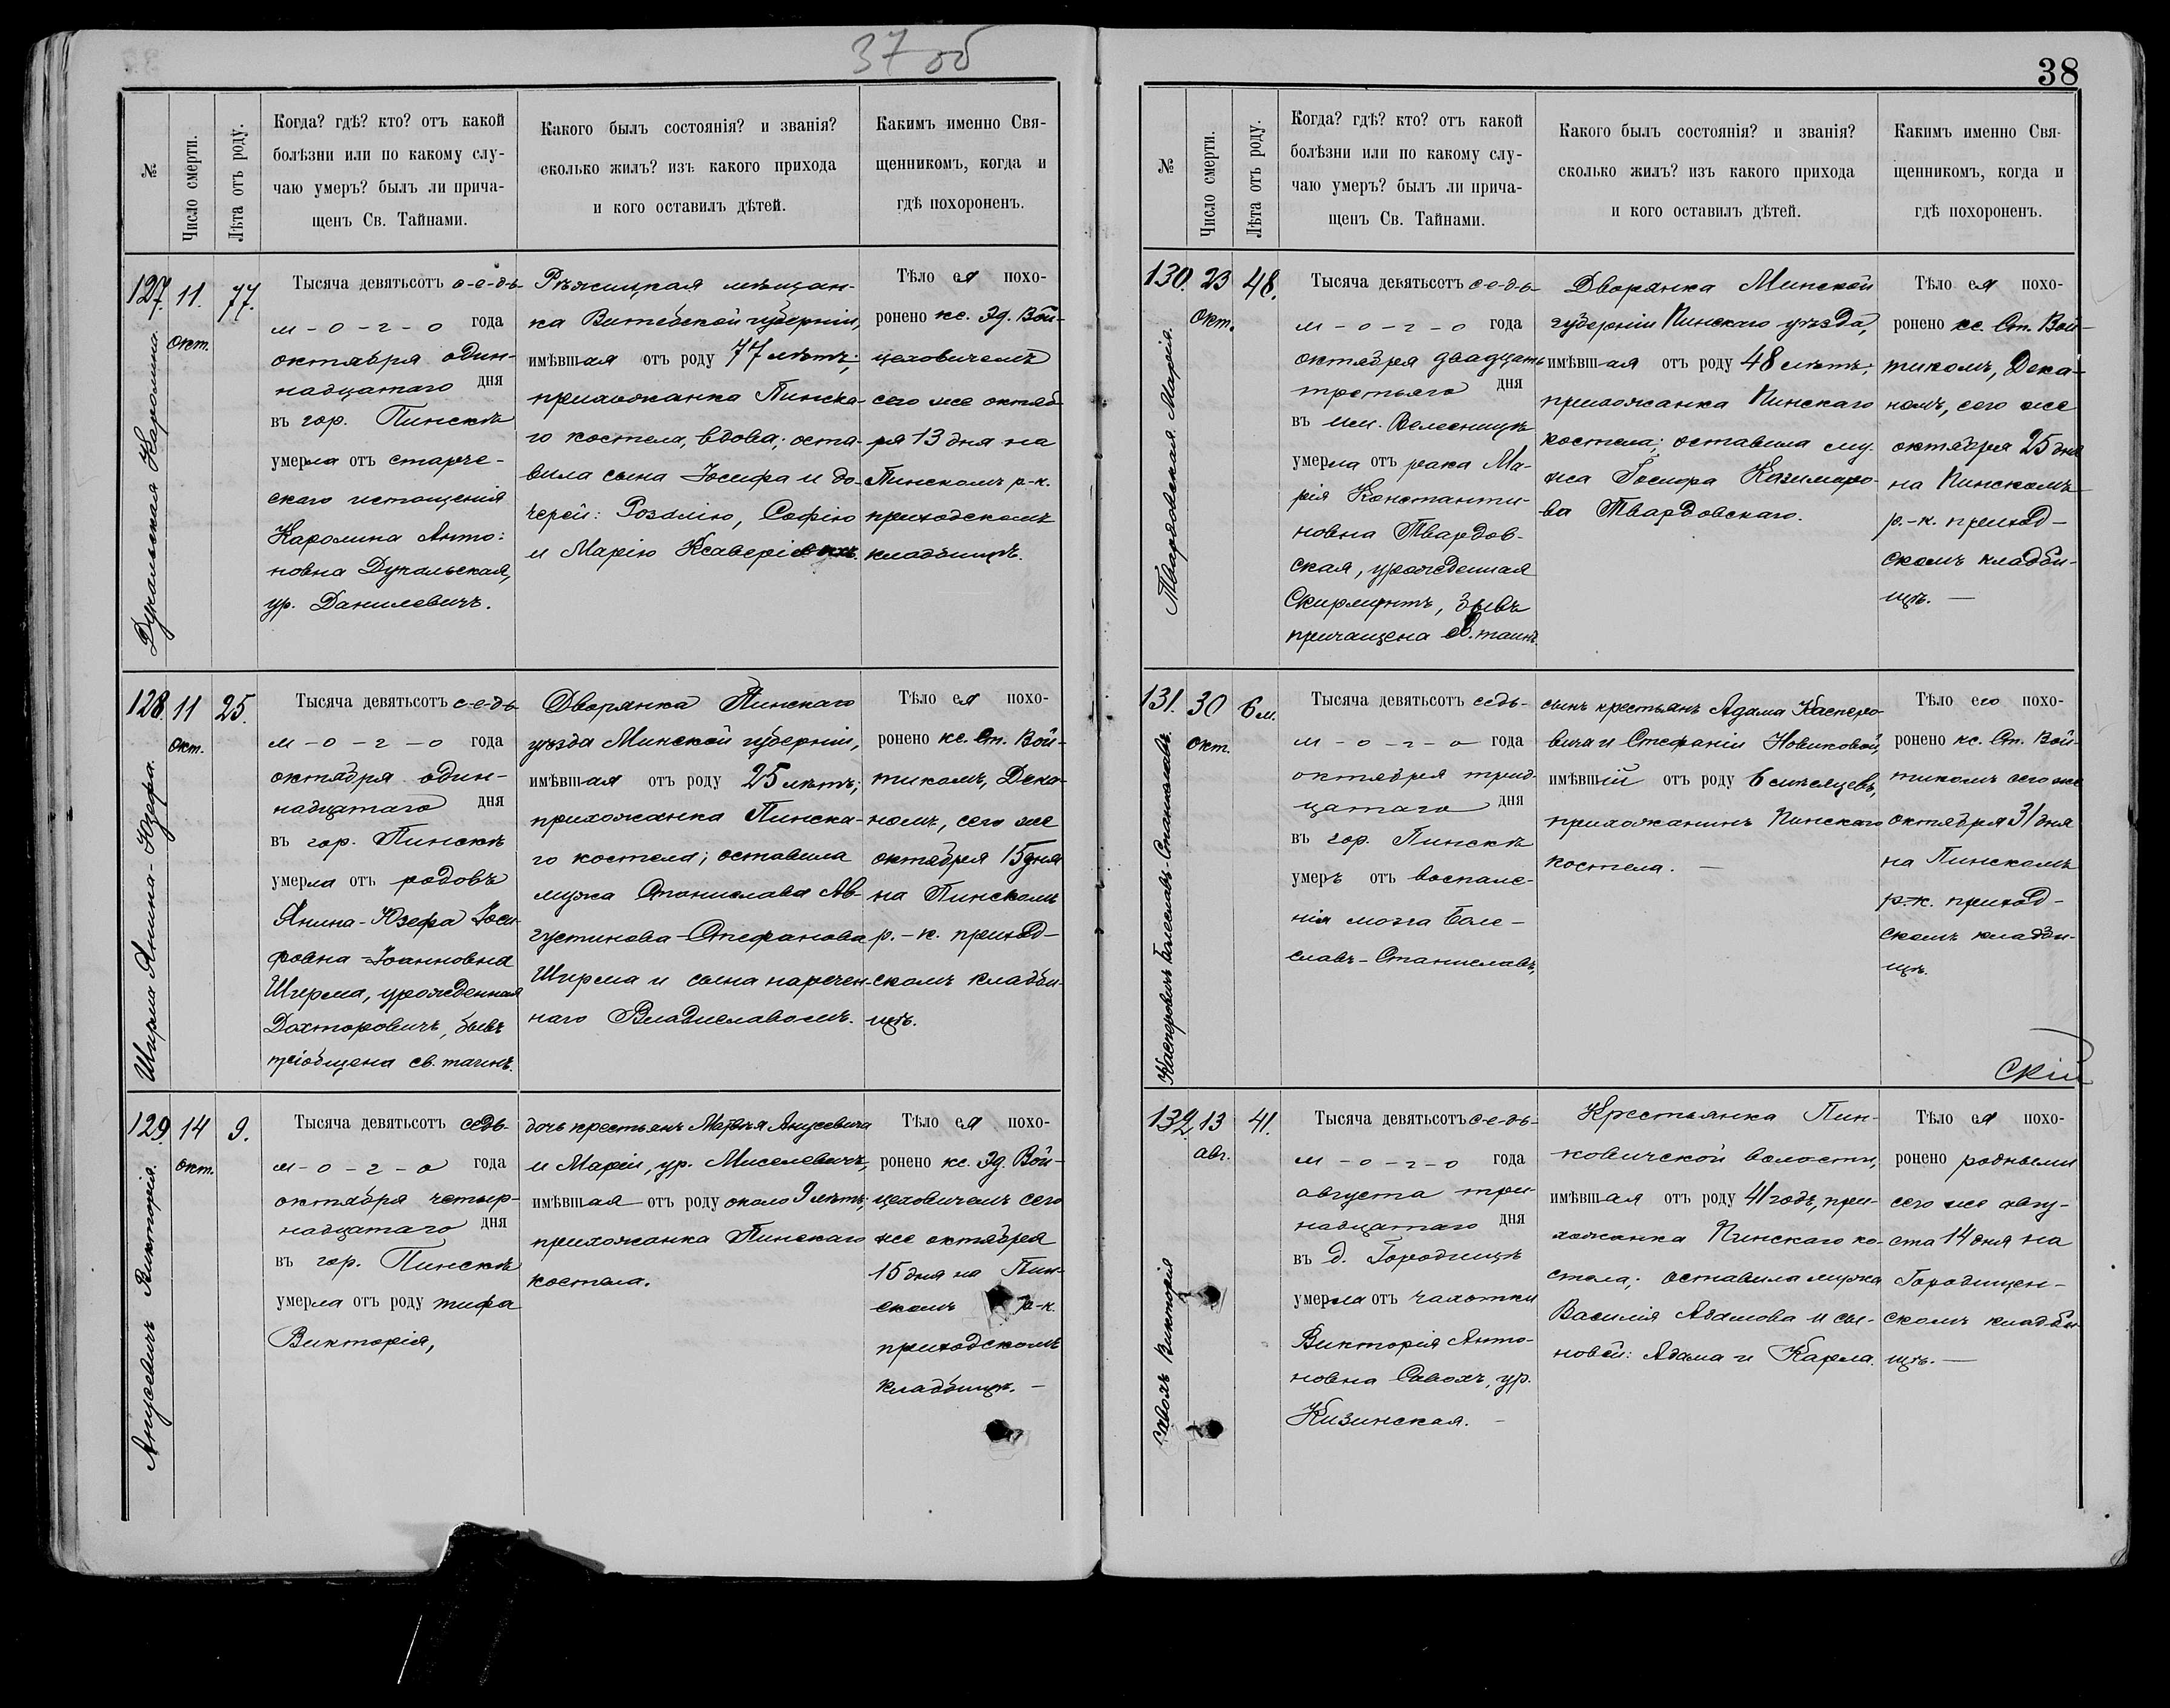 37 об
№
Число смерти.
Лѣта отъ роду.
Когда? гдѣ? кто? отъ какой
болѣзни или по какому слу-
чаю умеръ? былъ ли прича-
щенъ Св. Тайнами.
Какого былъ состоянія? и званія?
сколько жилъ? изъ какого прихода
и кого оставилъ дѣтей.
Какимъ именно Свя-
щенникомъ, когда и
гдѣ похороненъ.
127.
Дукальская Каролина.
11.
окт.
77.
Тысяча девятьсотъ с-е-дь-
м-о-г-о года
октября один-
надцатаго дня
въ гор. Пинскѣ
умерла отъ старче-
скаго истощенія
Каролина Анто-
новна Дукальская,
ур. Данилевичъ.
Рѣжицкая мѣщан-
ка Витебской губерніи,
имѣвшая отъ роду 77 лѣтъ;
прихожанка Пинска-
го костела, вдова; оста-
вила сына Іосифа и до-
черей: Розалію, Софію
и Марію
Тѣло ея похо-
ронено кс. Эд. Вой-
цеховичемъ
сего же октяб-
ря 13 дня на
Пинскомъ р-к.
приходскомъ
кладбищѣ.
128.
Ширма Янина-Юзефа.
11
окт.
25.
Тысяча девятьсотъ с-е-дь-
м-о-г-о года
октября один-
надцатаго дня
въ гор. Пинскѣ
умерла отъ родовъ
Янина-Юзефа Іоси-
фовна-Іоанновна
Ширма, урожденная
Дохторовичъ, бывъ
пріобщена св. таинъ.
Дворянка Пинскаго
уѣзда Минской губерніи,
имѣвшая отъ роду 25 лѣтъ;
прихожанка Пинска-
го костела; оставила
мужа Станислава Ав-
густинова-Стефанова
Ширма и сына наречен-
наго Владиславомъ.
Тѣло ея похо-
ронено кс. Ст. Вой-
тикомъ, Дека-
номъ, сего же
октября 15 дня
на Пинскомъ
р.-к. приход-
скомъ кладби-
щѣ.
129.
Анусевичъ Викторія.
14
окт.
9.
Тысяча девятьсотъ седь-
м-о-г-о года
октября четыр-
надцатаго дня
въ гор. Пинскѣ
умерла отъ роду тифа
Викторія,
дочь крестьянъ Матвѣя Анусевича
и Маріи, ур. Миселевичъ,
имѣвшая отъ роду около 9 лѣтъ;
прихожанка Пинскаго
костела.
Тѣло ея похо-
ронено кс. Эд. Вой-
цеховичемъ сего
же октября
15 дня на Пин-
скомъ р-к.
приходскомъ
кладбищѣ. —
38
№
Число смерти.
Лѣта отъ роду.
Когда? гдѣ? кто? отъ какой
болѣзни или по какому слу-
чаю умеръ? былъ ли прича-
щенъ Св. Тайнами.
Какого былъ состоянія? и званія?
сколько жилъ? изъ какого прихода
и кого оставилъ дѣтей.
Какимъ именно Свя-
щенникомъ, когда и
гдѣ похороненъ.
130.
Твардовская Марія.
23
окт.
48.
Тысяча девятьсотъ с-е-дь-
м-о-г-о года
октября двадцать
третьяго дня
въ им. Велесницѣ
умерла отъ рака Ма-
рія Константи-
новна Твардов-
ская, урожденная
Скирмунтъ, бывъ
причащена св. таинъ.
Дворянка Минской
губерніи Пинскаго уѣзда,
имѣвшая отъ роду 48 лѣтъ;
прихожанка Пинскаго
костела; оставила му-
жа Іосифа Казимиро-
ва Твардовскаго.
Тѣло ея похо-
ронено кс. Ст. Вой-
тикомъ, Дека-
номъ, сего же
октября 25 дня
на Пинскомъ
р.-к. приход-
скомъ кладби-
щѣ. —
131.
Касперовичъ Болеславъ-Станиславъ.
30
окт.
6 м.
Тысяча девятьсотъ седь-
м-о-г-о года
октября трид-
цатаго дня
въ гор. Пинскѣ
умеръ отъ воспале-
нія мозга Боле-
славъ-Станиславъ,
сынъ крестьянъ Адама Касперо-
вича и Стефаніи Новиковой,
имѣвшій отъ роду 6 мѣсяцевъ,
прихожанинъ Пинскаго
костела. —
Тѣло его похо-
ронено кс. Ст. Вой-
тикомъ сего же
октября 31 дня
на Пинскомъ
р-к. приход-
скомъ кладби-
щѣ.
скій
132.
Савохъ Викторія
13
авг.
41.
Тысяча девятьсотъ с-е-дь-
м-о-г-о года
августа три-
надцатаго дня
въ д. Городищѣ
умерла отъ чахотки
Викторія Анто-
новна Савохъ, ур.
Кизинская. —
Крестьянка Пин-
ковичской волости,
имѣвшая отъ роду 41 годъ, при-
хожанка Пинскаго ко-
стела; оставила мужа
Василія Адамова и сы-
новей: Адама и Карла.
Тѣло ея похо-
ронено родными
сего же авгу-
ста 14 дня на
Городищен-
скомъ кладби-
щѣ. —